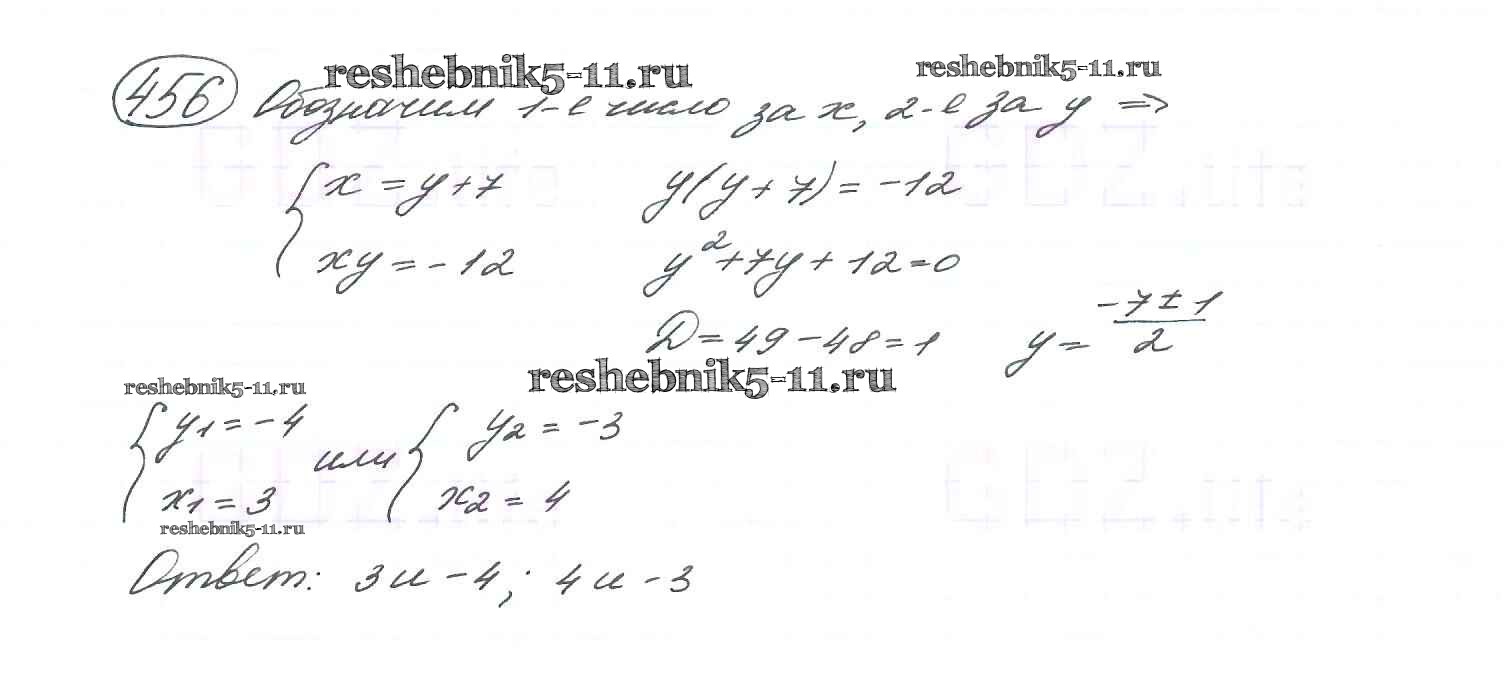 reshebnik5-11.ru reshebnik5-11.ru
456 Обозначим 1-е число за x, 2-е за y =>
{ x = y + 7 y(y + 7) = -12
xy = -12 y² + 7y + 12 = 0
D = 49 - 48 = 1 y = (-7 ± 1)/2
reshebnik5-11.ru reshebnik5-11.ru
{ y1 = -4 или { y2 = -3
x1 = 3 x2 = 4
reshebnik5-11.ru
Ответ: 3 и -4; 4 и -3